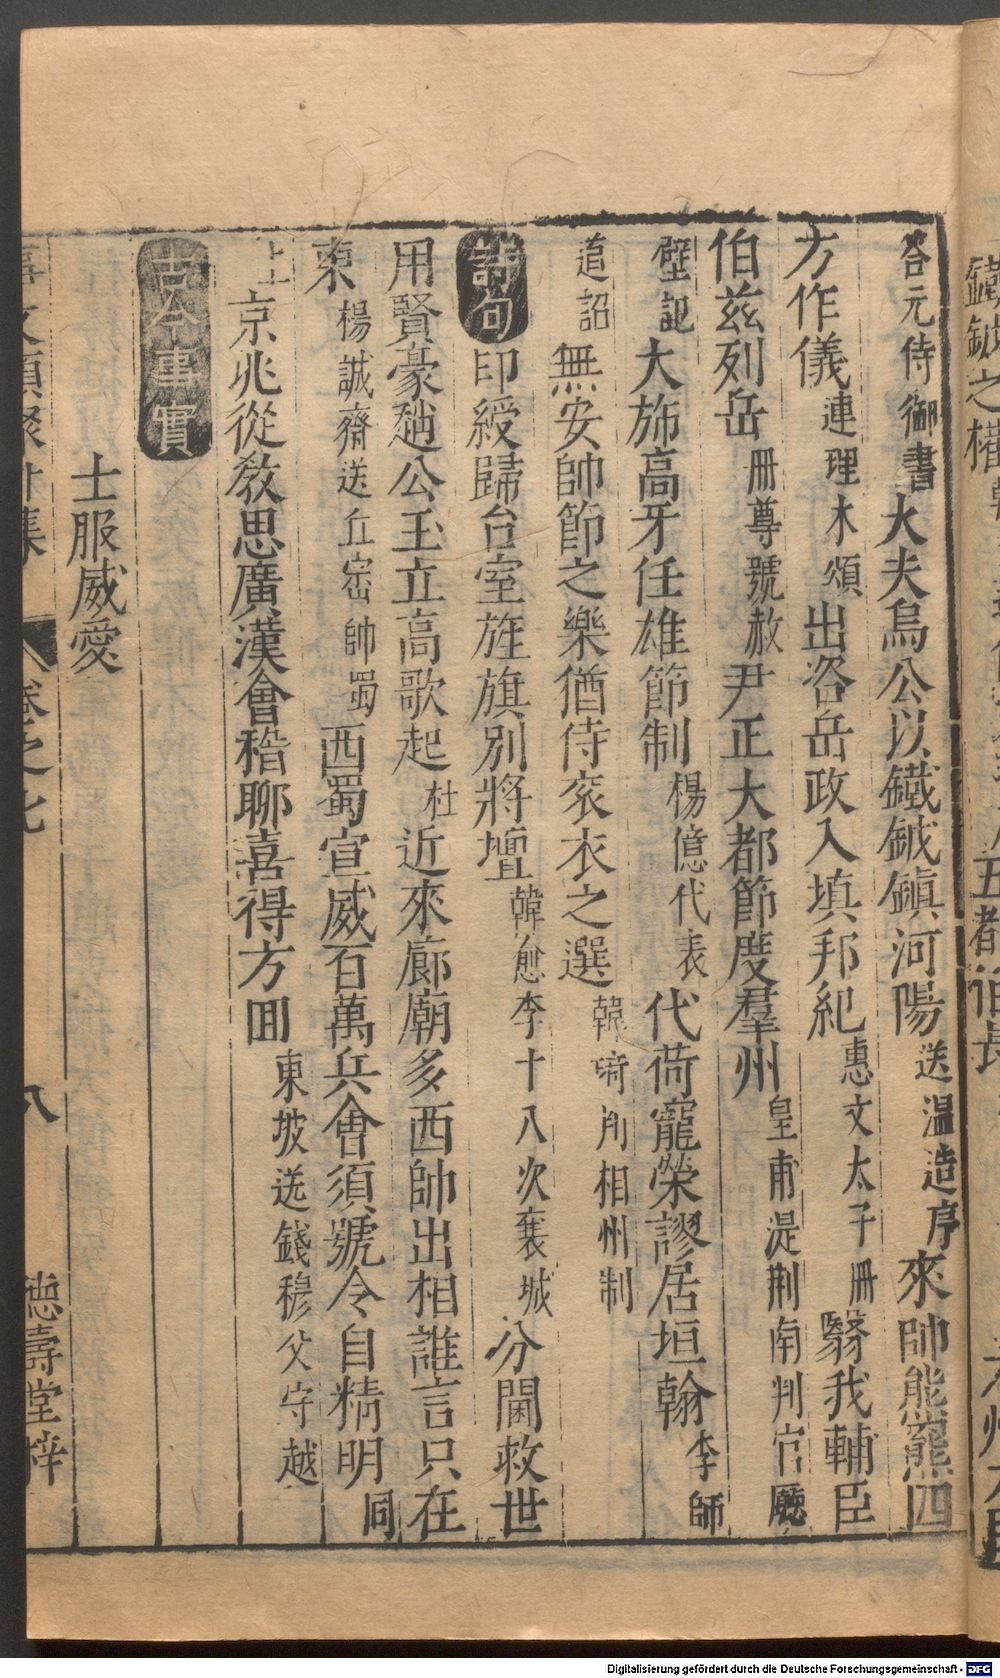 答元侍御書大夫烏公以鐵鉞鎭河陽送溫造序來帥熊羆四
方作儀連理木頌出咨岳政入填邦紀惠文太子冊翳我輔臣
伯兹列岳冊尊號赦尹正大都節度羣州皇甫湜荆南判官廳
壁記大斾高牙任雄節制楊億代表代荷寵榮謬居垣翰李師
道詔無安帥節之樂猶侍衮衣之選韓琦判相州制
詩句印綬歸台室旌旗別將壇韓愈李十八次襄城分閫救世
用賢豪趙公玉立高歌起杜近來廊廟多西帥出相誰言只在
東楊誠齋送丘宻帥蜀西蜀宣威百萬兵會須號令自精明同
上京兆從教思廣漢會稽聊喜得方回東坡送錢穆父守越
古今事實
士服威愛
事文類聚外集 卷之七 八 德壽堂梓
鐵鉞之權
五都伯長
Digitalisierung gefördert durch die Deutsche Forschungsgemeinschaft - DFG